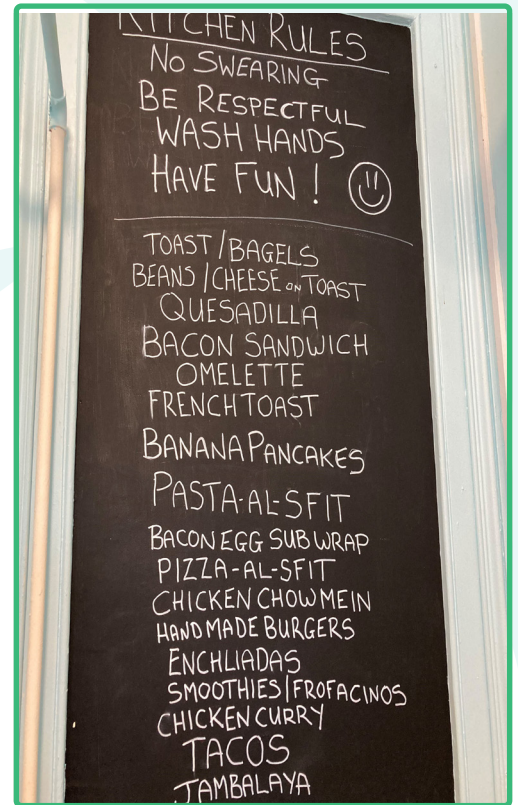 KITCHEN RULES
NO SWEARING
BE RESPECTFUL
WASH HANDS
HAVE FUN !
TOAST/BAGELS
BEANS/CHEESE ON TOAST
QUESADILLA
BACON SANDWICH
OMELETTE
FRENCH TOAST
BANANA PANCAKES
PASTA-AL-SFIT
BACON EGG SUB WRAP
PIZZA-AL-SFIT
CHICKEN CHOW MEIN
HAND MADE BURGERS
ENCHLIADAS
SMOOTHIES|FROFACINOS
CHICKEN CURRY
TACOS
JAMBALAYA